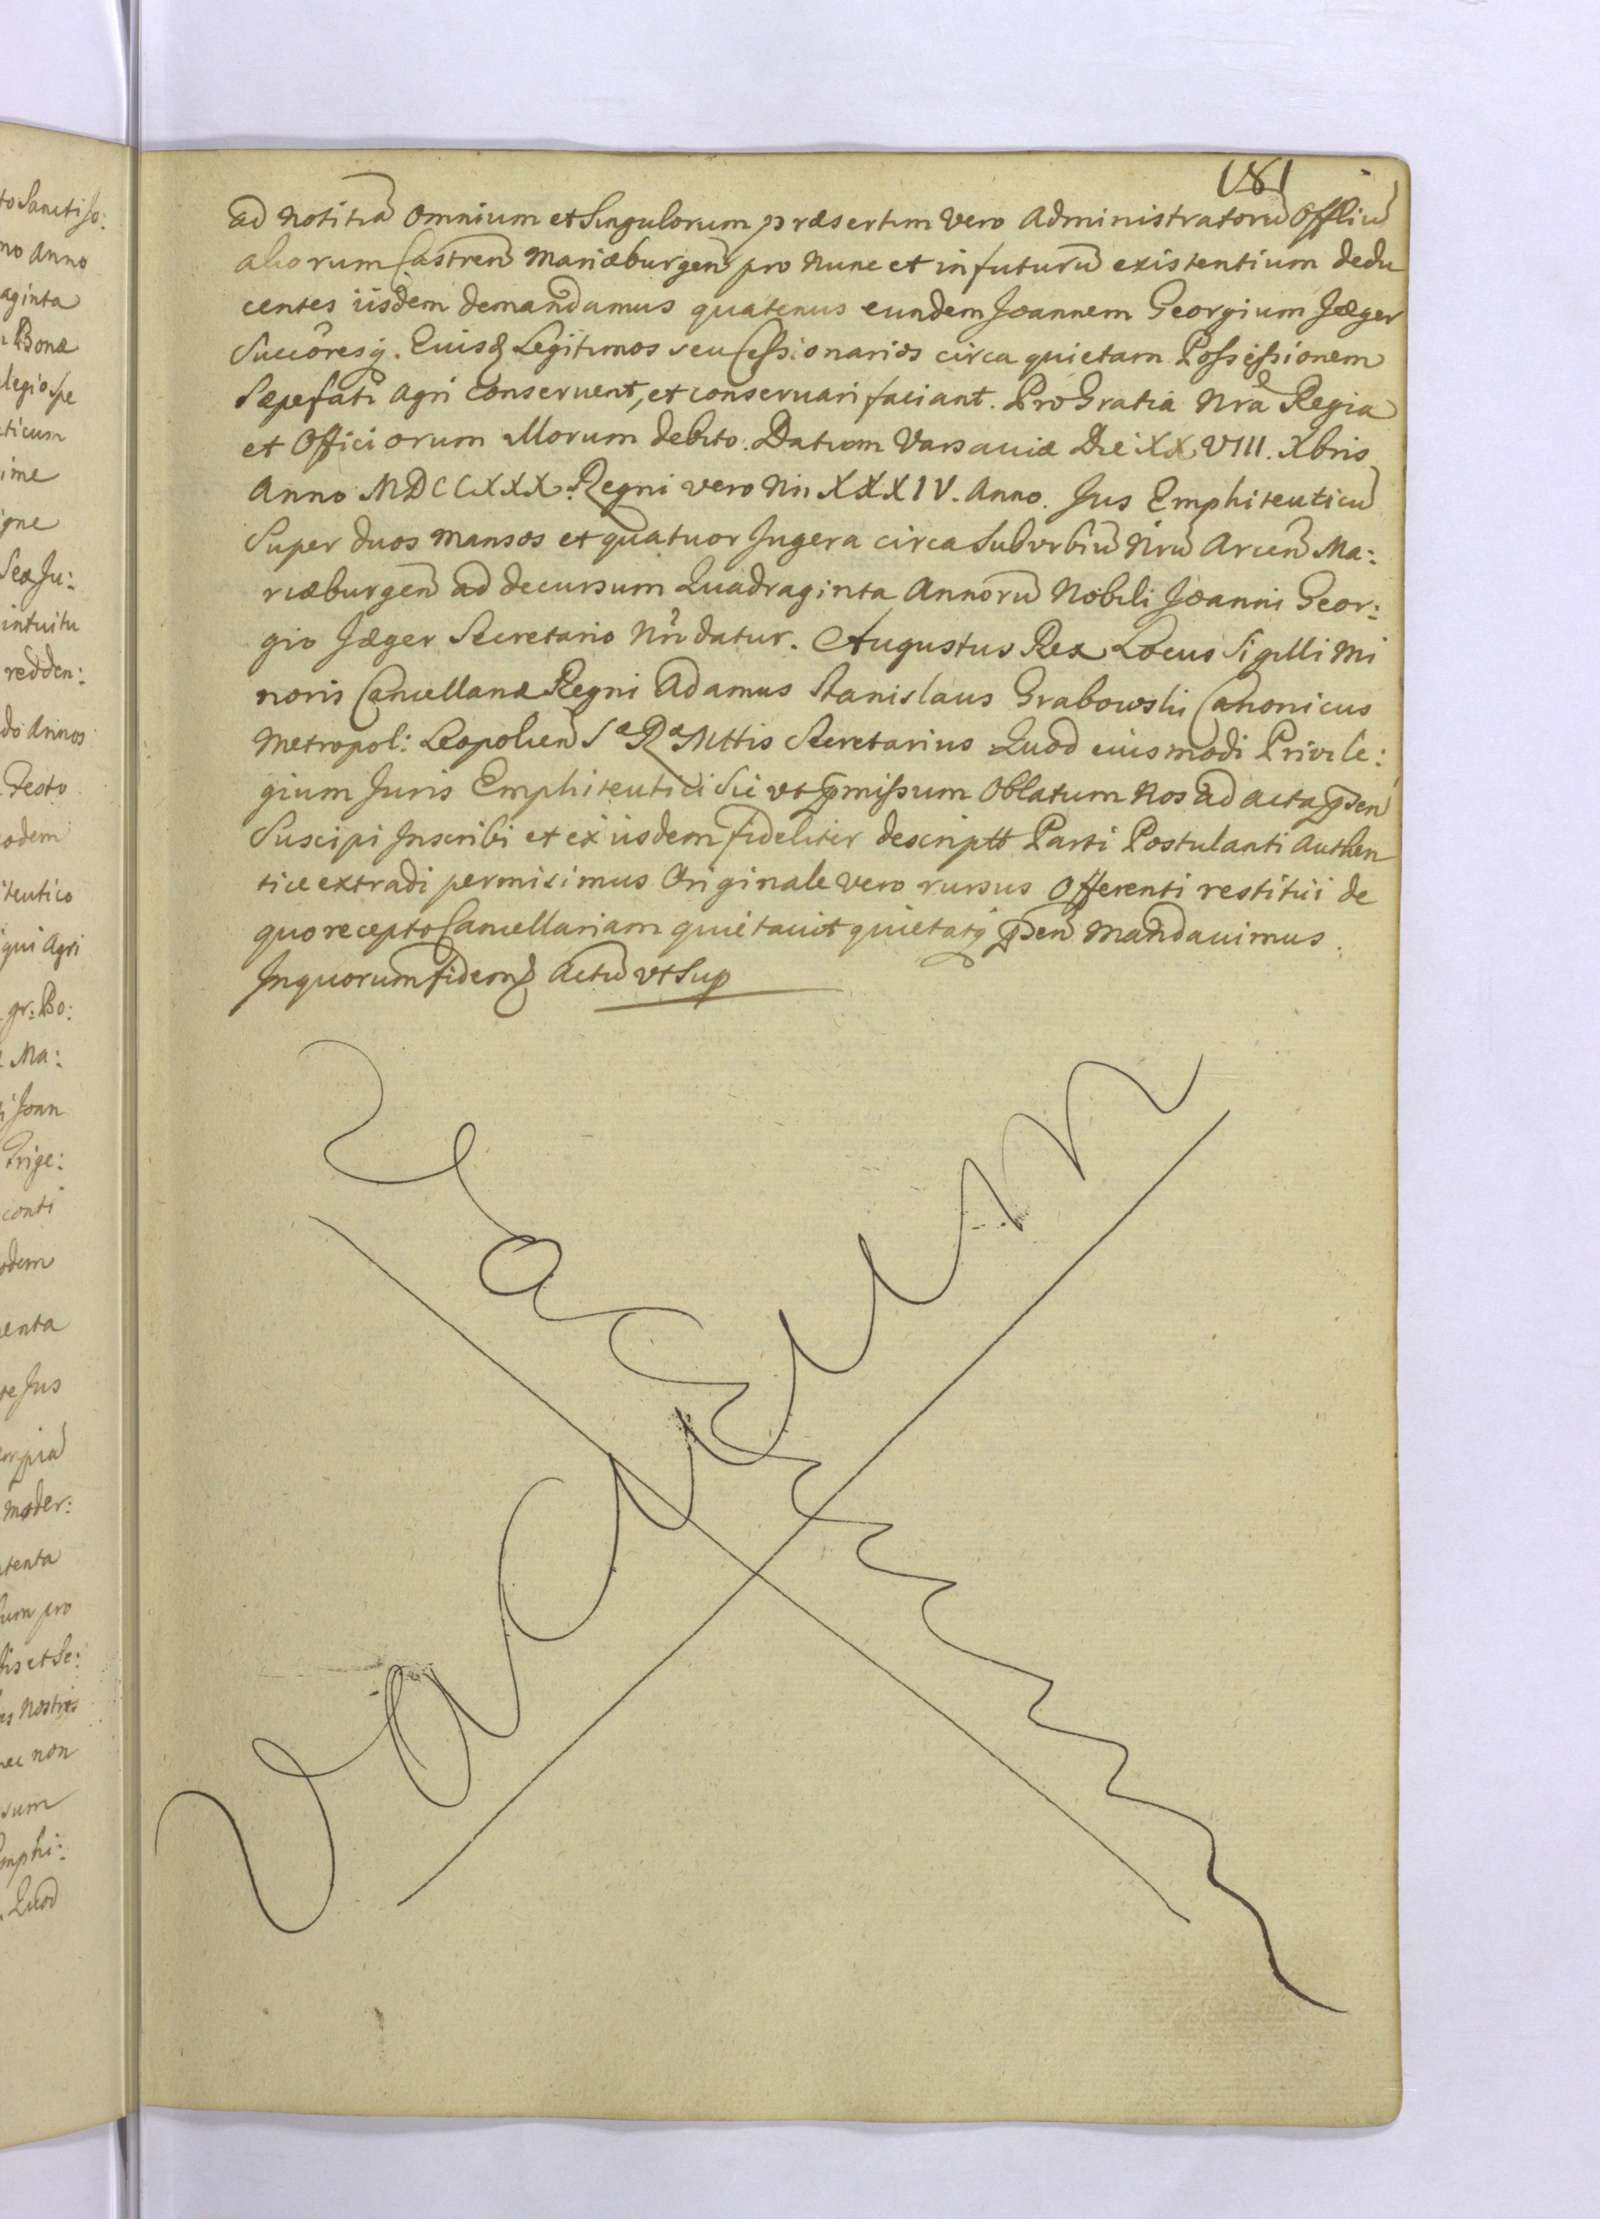 181
ad notitiã Omnium et Singulorum præsertim vero Administratorũ Offliũ
aliorum Castren̄ Mariæburgen̄ pro nunc et in futurũ existentium dedu
centes iisdem demandamus quatenus eundem Joannem Georgium Jæger
Succôresq. Eius Legitimos seu Cessionarios circa quietam Possessionem
Sæpefati Agri conservent, et conservari faciant. Pro Gratia Nrã Regia
et Officiorum Morum debito. Datum Varsaviæ Die XXVIII. Xbris
Anno MDCCXXX. Regni vero Nri XXXIV. Anno. Jus Emphiteuticũ
Super duos mansos et quatuor Jugera circa Suburbiũ Nrũ Arcen̄ Ma:
riæburgen̄ ad decursum Quadraginta Annorũ Nobili Joanni Geor:
gio Jæger Secretario Nrõ datur. Augustus Rex Locus Sigilli Mi
noris Cancellariæ Regni Adamus Stanislaus Grabowski Canonicus
Metropol: Leopolien̄ Sæ Ræ Mttis Secretarius Quod eiusmodi Privile:
gium Juris Emphiteutici Sic vt p̄missum Oblatum Nos ad acta p̄sen
Suscipi Inscribi et ex iisdem fideliter descriptt Parti Postulanti Authen
tice extradi permisimus Originale vero rursus Offerenti restitui de
quo recepto Cancellariam quietavit quietarq p̄sen̄ Mandavimus.
In quorum fidem Actũ vt Sup
Vacuum
to Sancti Jo:
no Anno
aginta
Bonæ
legio Spe
ticum
ime
igne
Seæ Ju:
intuitu
redden:
do Annos
Festo
odem
iteutico
iqui Agri
gr: Bo:
Ma:
Joan
Trige:
conti
odem
enta
te Jus
moder:
tenta
sum pro
lis et Se:
es Nostris
nec non
sum
Emphi:
Quod